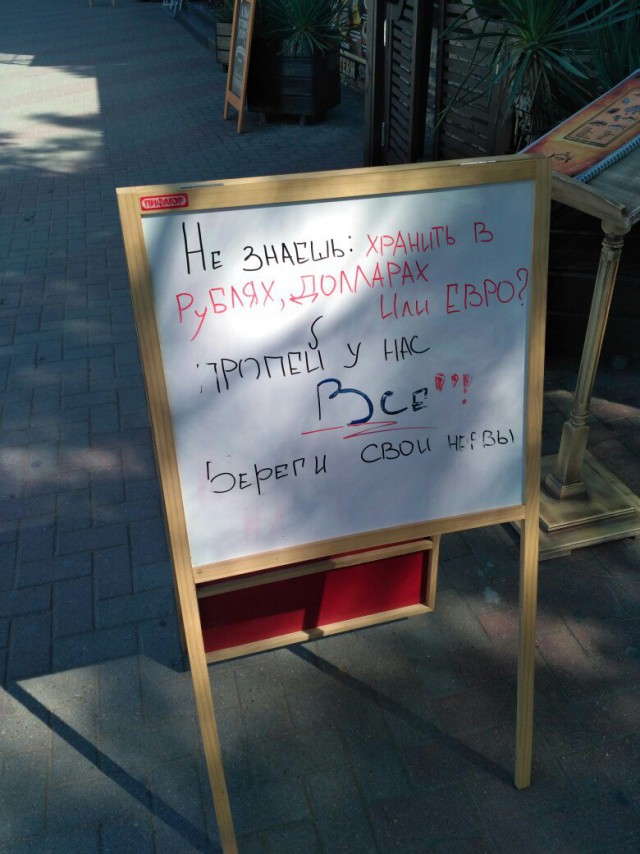 ПИФАГОР
Не знаешь: хранить в
рублях, долларах
или евро?
пропей у нас
Все"'!
Береги свои нервы